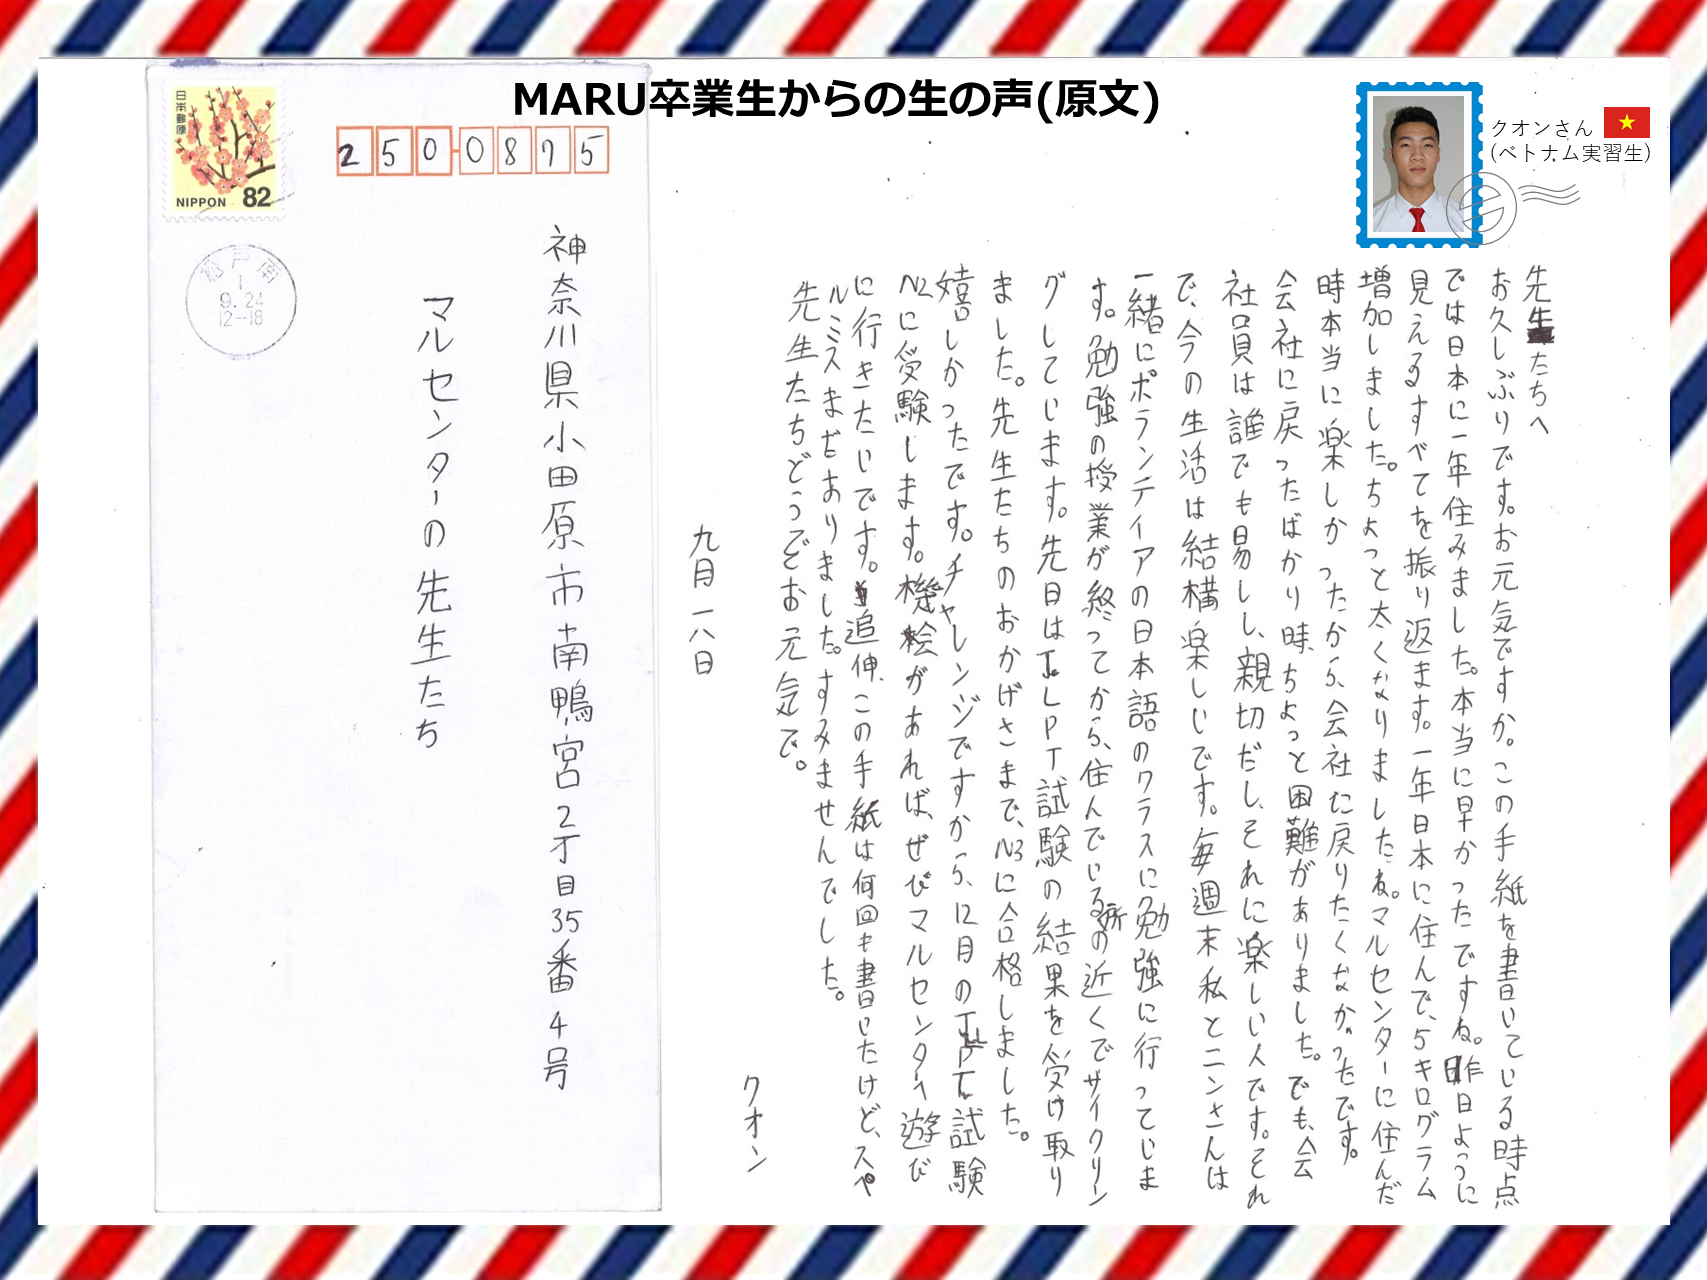 MARU卒業生からの生の声(原文)
クオンさん
(ベトナム実習生)
日本郵便
NIPPON 82
250-0875
松戸南
1
9.24
12-18
神奈川県小田原市南鴨宮2丁目35番4号
マルセンターの先生たち
先生たちへ
お久しぶりです。お元気ですか。この手紙を書いている時点
では日本に一年住みました。本当に早かったですね。昨日ように
見えるすべてを振り返ます。一年日本に住んで、5キログラム
増加しました。ちょっと太くなりましたね。マルセンターに住んだ
時本当に楽しかったから、会社に戻りたくなかったです。
会社に戻ったばかり時、ちょっと困難がありました。でも、会
社員は誰でも易しし、親切だし、それに楽しい人です。それ
で、今の生活は結構楽しいです。毎週末私とニンさんは
一緒にボランティアの日本語のクラスに勉強に行っていま
す。勉強の授業が終ってから、住んでいる所の近くでサイクリン
グしています。先日はJLPT試験の結果を受け取り
ました。先生たちのおかげさまで、N3に合格しました。
嬉しかったです。チャレンジですから、12月のJLPT試験
N2に受験します。機会があれば、ぜひマルセンターへ遊び
に行きたいです。追伸、この手紙は何回も書いたけど、スペ
ルミスまだありました。すみませんでした。
先生たちどうぞお元気で。
九月一八日
クオン